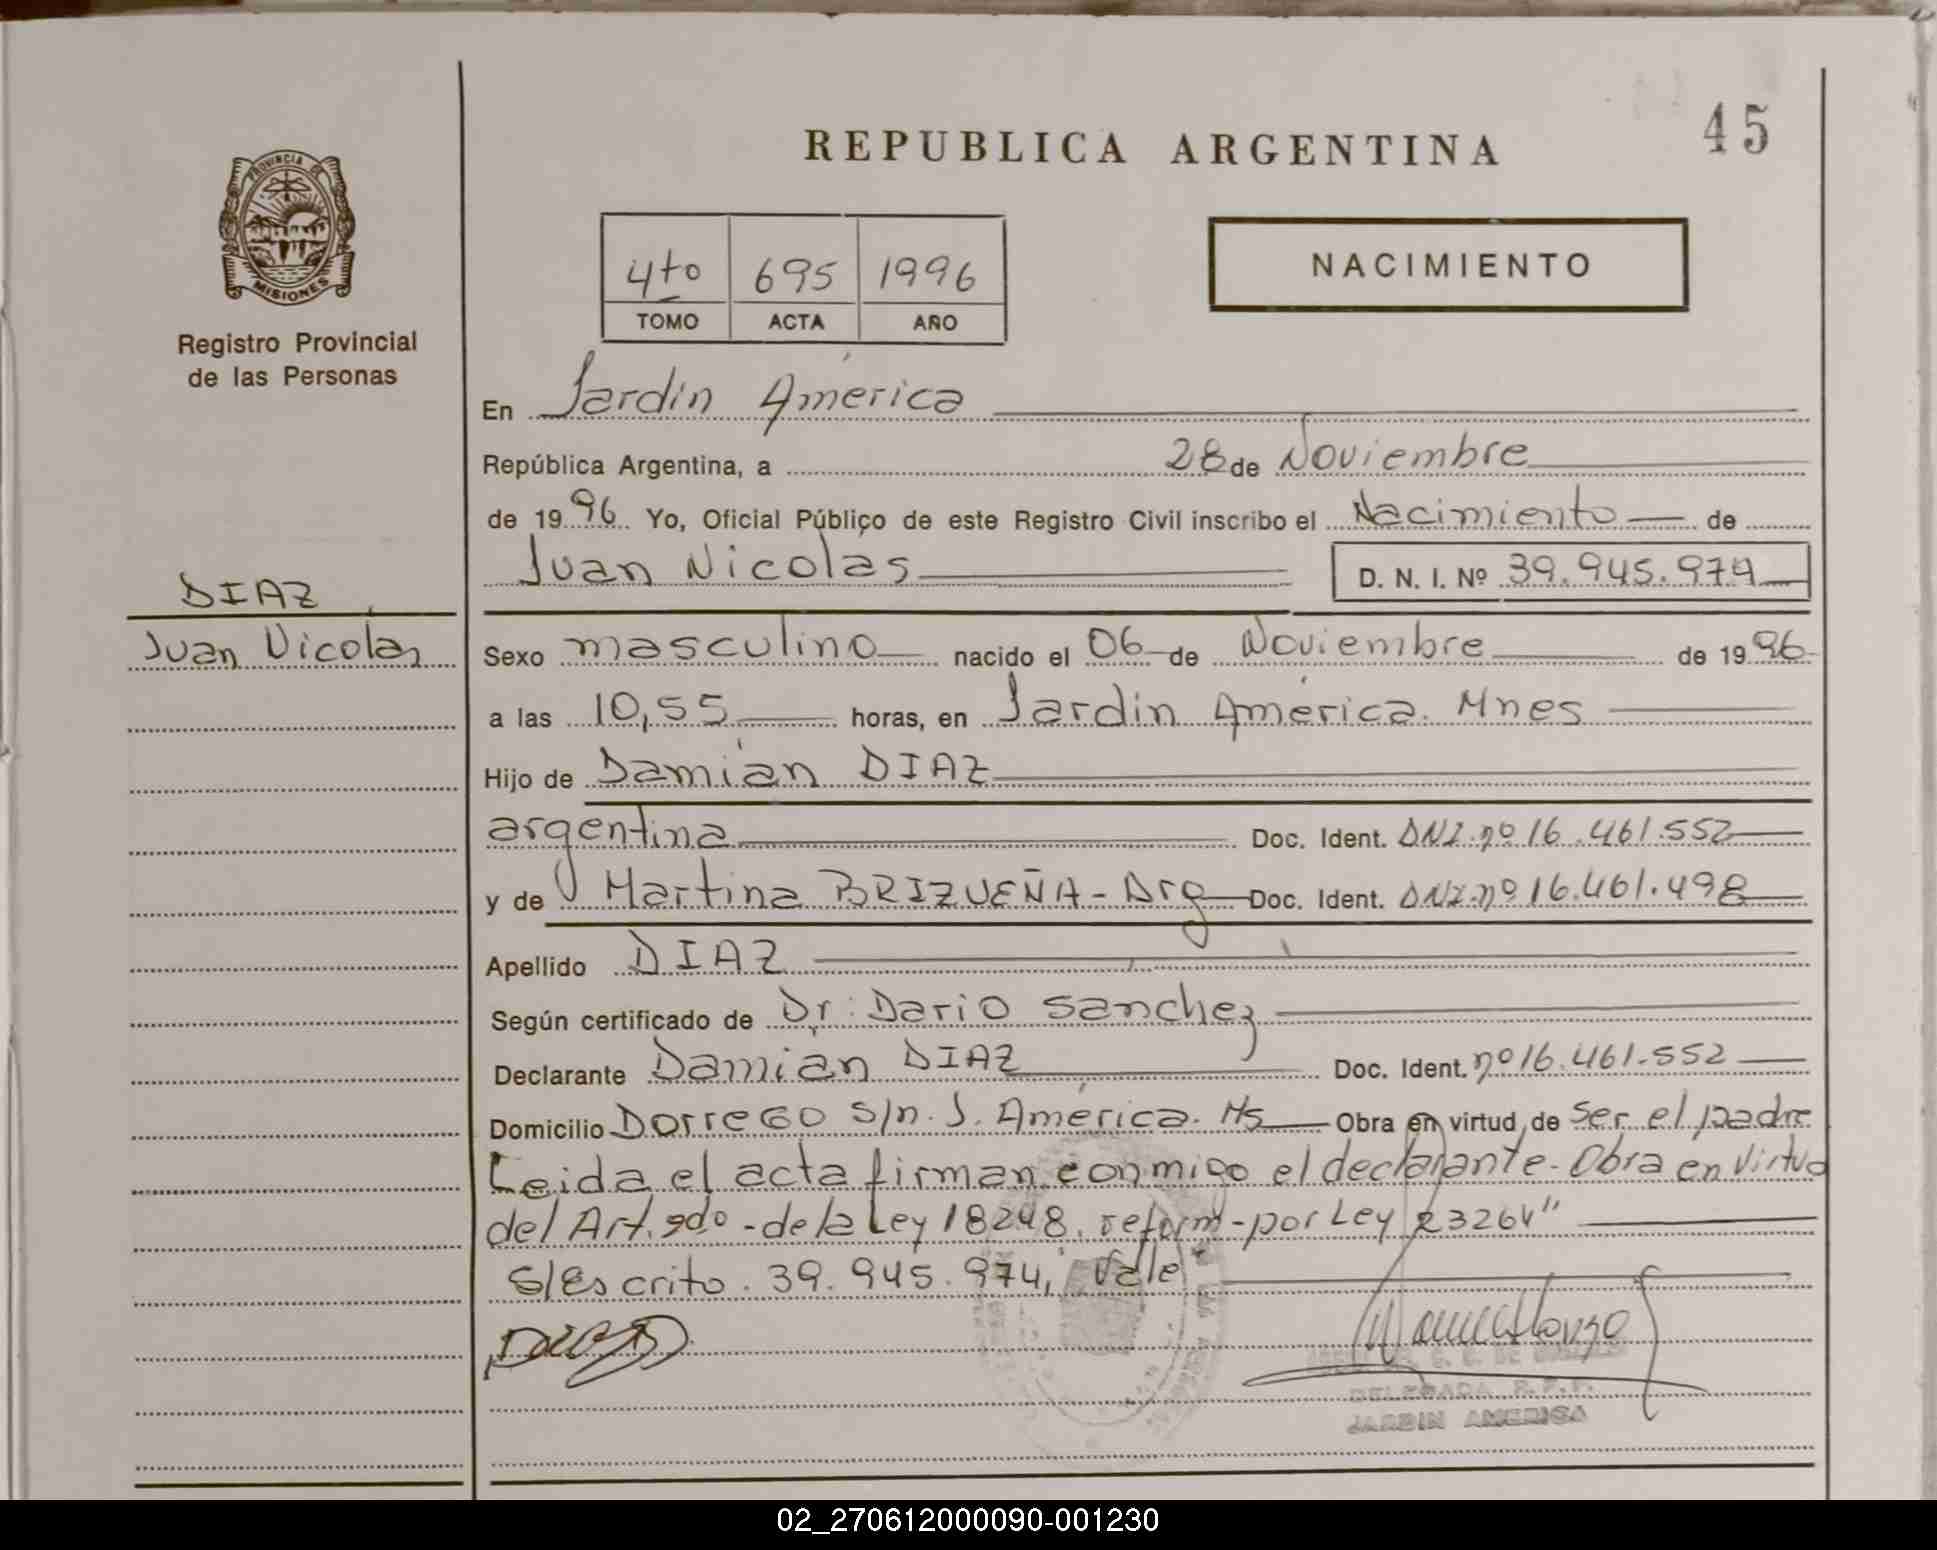 REPUBLICA ARGENTINA
45
PROVINCIA DE
MISIONES
Registro Provincial
de las Personas
4to 695 1996
TOMO ACTA AÑO
NACIMIENTO
En Jardín América
República Argentina, a 28 de Noviembre
de 1996 Yo, Oficial Público de este Registro Civil inscribo el Nacimiento de
Juan Nicolas D. N. I. Nº 39.945.974
DIAZ,
Juan Nicolas
Sexo masculino nacido el 06 de Noviembre de 1996
a las 10,55 horas, en Jardín América. Mnes
Hijo de Damián DIAZ
argentina Doc. Ident. DNI.nº 16.461.552
y de Martina BRIZUEÑA - Arg Doc. Ident. DNI.nº 16.461.498
Apellido DIAZ
Según certificado de Dr: Dario Sanchez
Declarante Damián DIAZ Doc. Ident. nº 16.461.552
Domicilio Dorrego s/n. J. América. Ms Obra en virtud de ser el padre
Leida el acta firman conmigo el declarante - Obra en virtud
del Art. 2do - de la Ley 18248. reform - por Ley 23264"
S/Escrito. 39.945.974, Vale
DELEGADA R.P.P.
JARDIN AMERICA
02_270612000090-001230